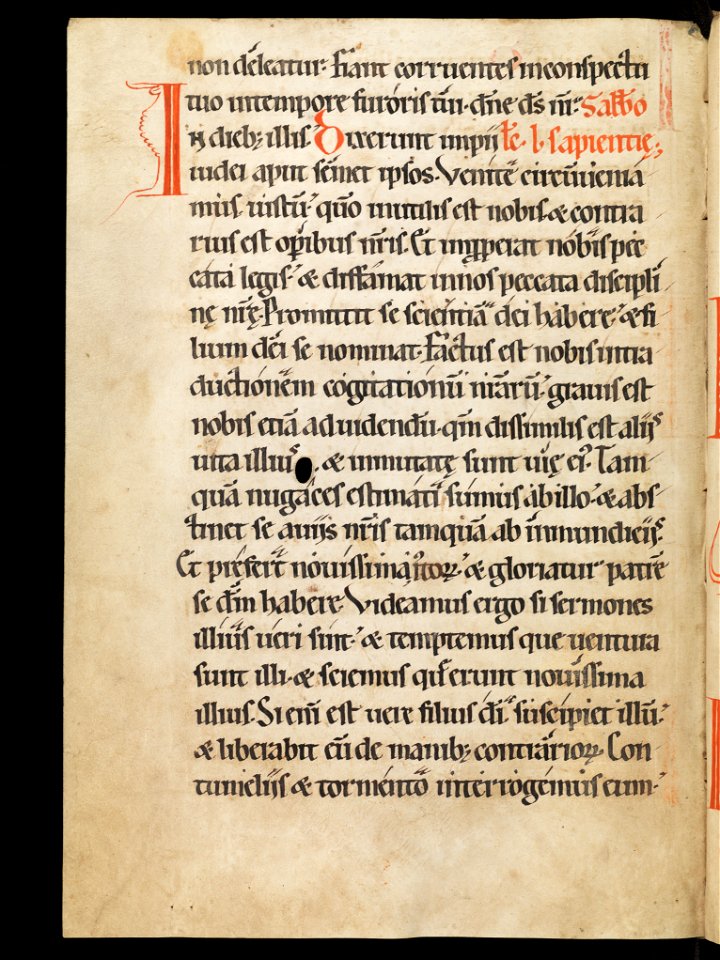 non deleatur. Fiant corruentes inconspectu
tuo intempore furoris tui. dn̄e ds̄ nr̄. Sabb̄o
In dieb; illis. Dixerunt impii lc̄. l. sapientię;
iudei aput semet ipsos. Venite circūuenia
mus. uistū. qm̄o inutilis est nobis. & contra
rius est opibus nr̄is. Et impperat nobis pec
cata legis. & diffamat innos peccata discipli
nę nr̄ę. Promittit se scientiā dei habere. & fi
lium dei se nominat. Factus est nobis intra
ductionem cogitationū nr̄arū. grauis est
nobis etiā aduidendū. qm̄ dissimilis est aliis
uita illius. & inmutatę sunt uię ei. Tam
quā nugaces estimati sumus abillo. & abs
tinet se auiis nr̄is tamquā ab inmundiciis.
Et prefert nouissima iustoꝝ. & gloriatur patrē
se dm̄ habere. Videamus ergo si sermones
illius ueri sint. & temptemus que uentura
sunt illi. & sciemus quę erunt nouissima
illius. Si enī est uere filius di. suscipiet illū.
& liberabit eū de manib; contrarioꝝ. Con
tumeliis & tormento interrogemus eum.